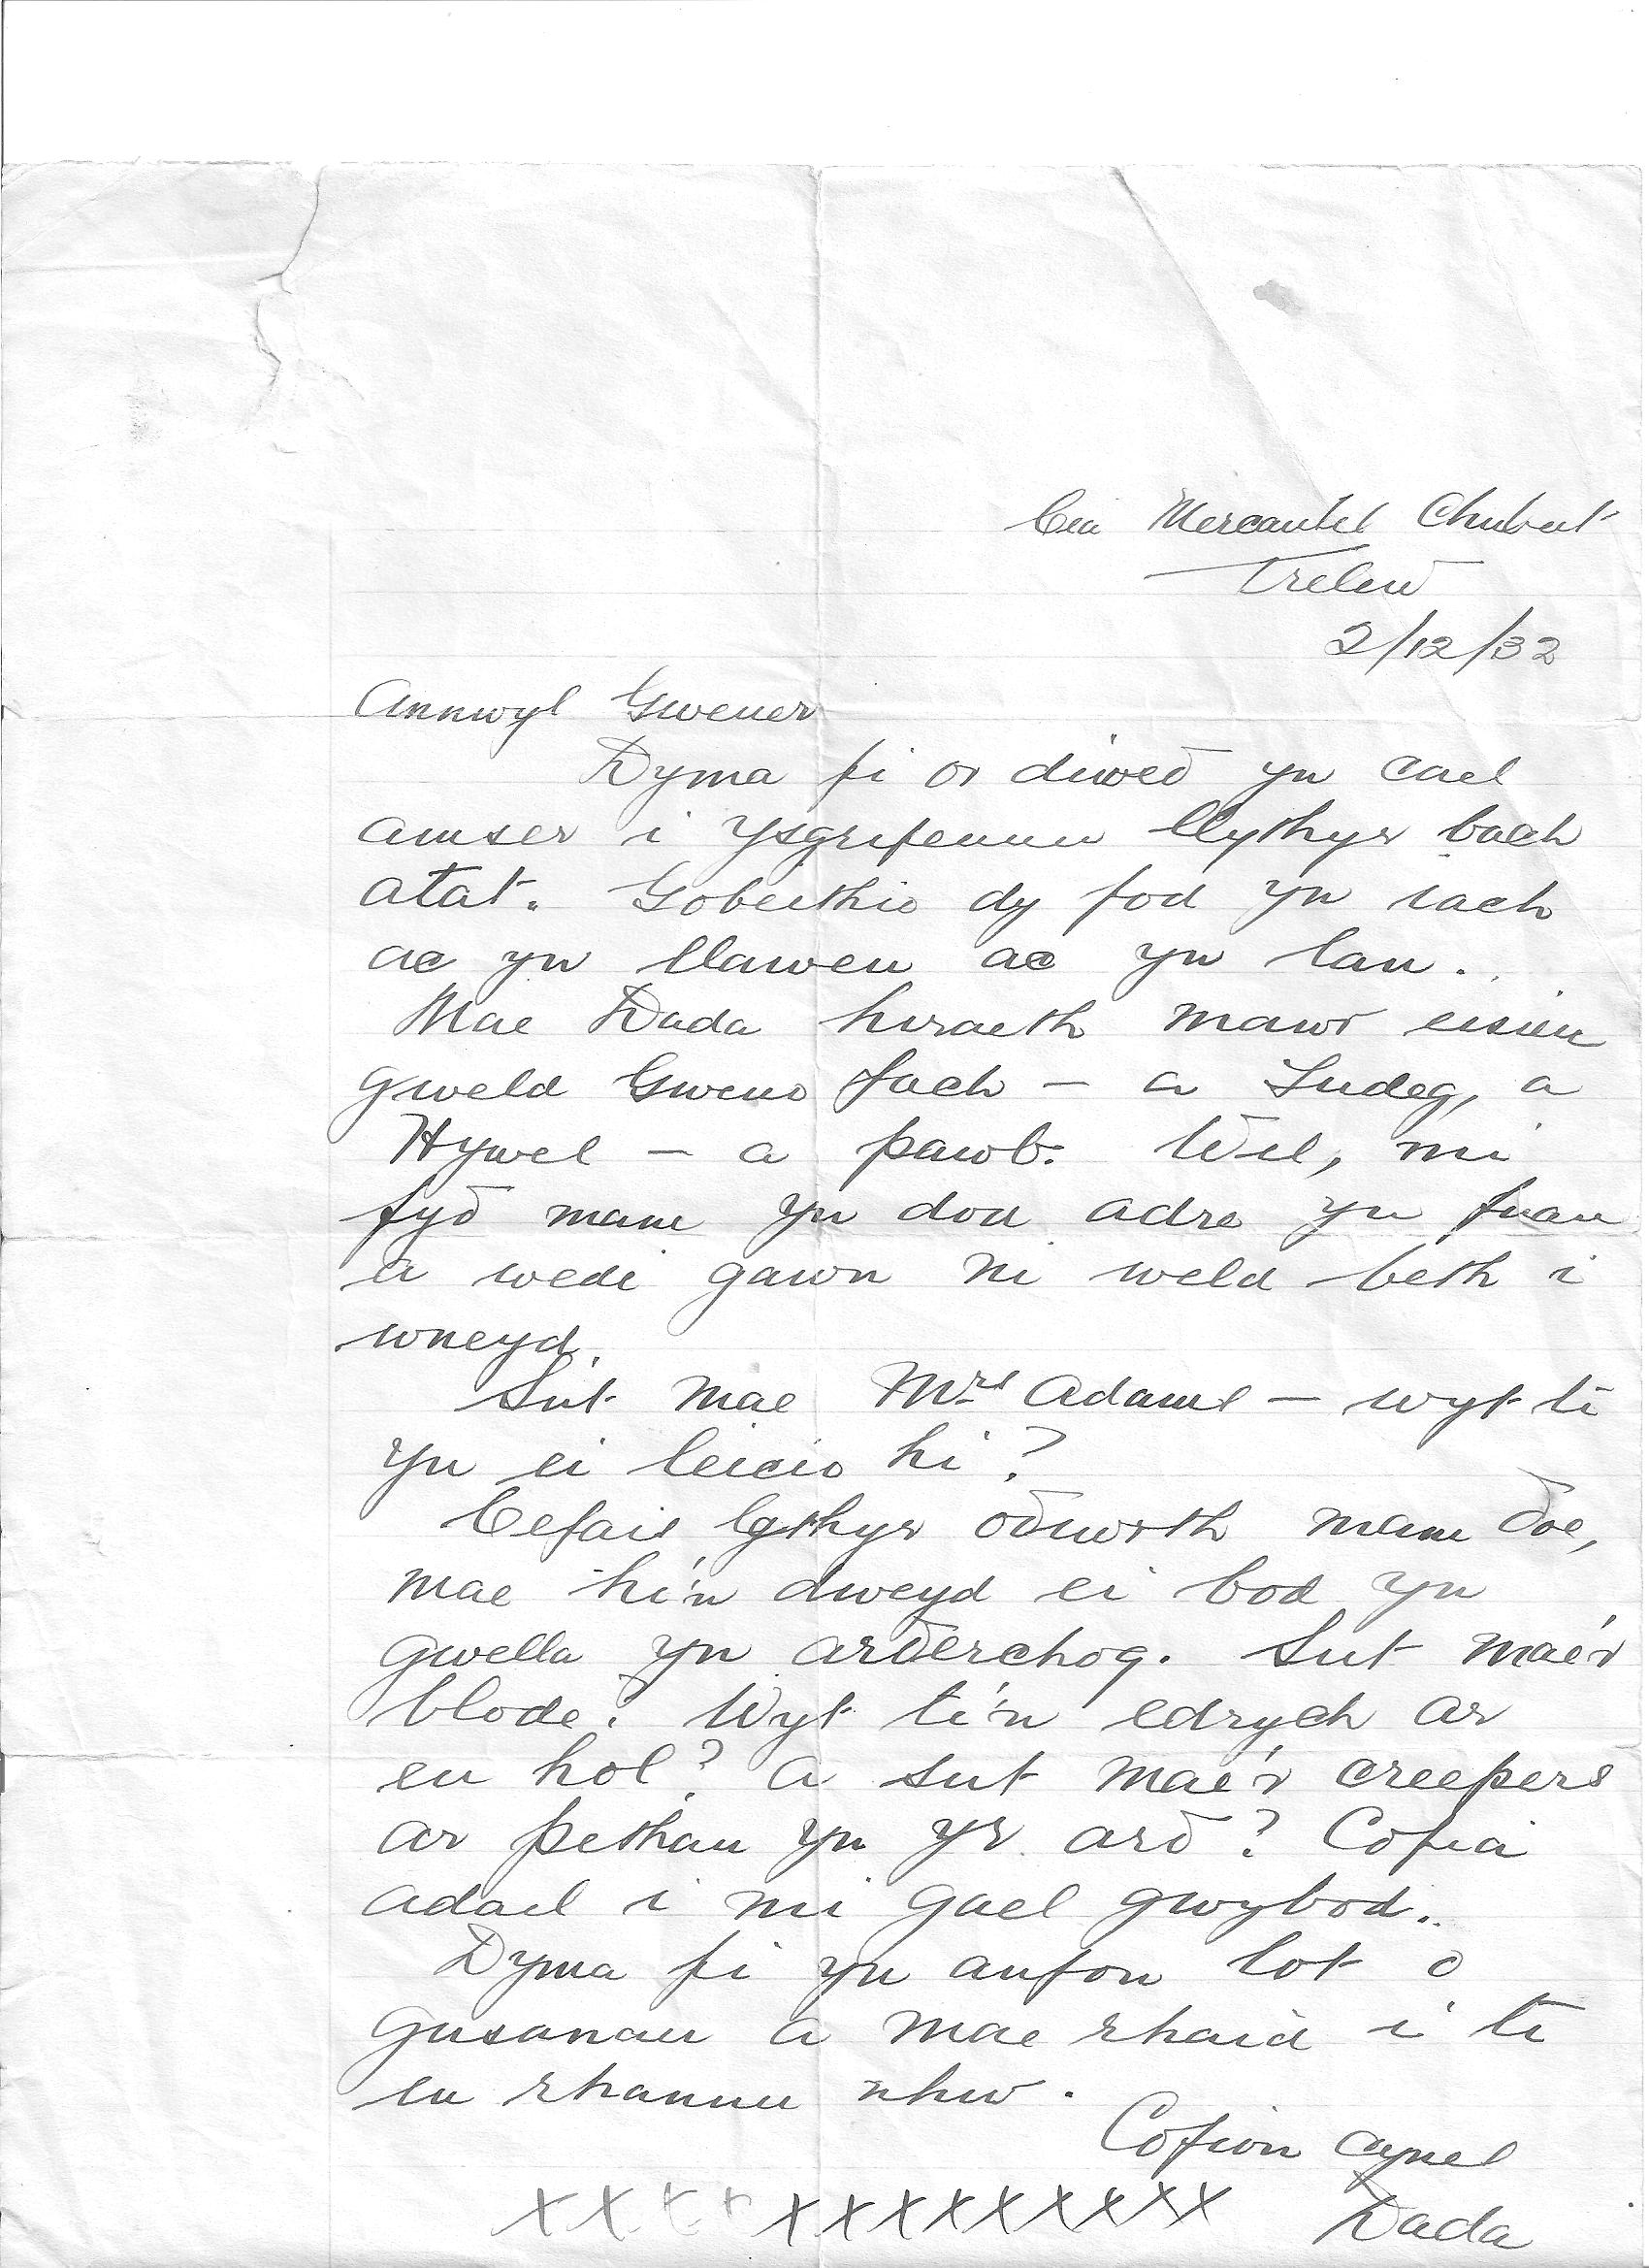 Cia Mercantil Chubut
Trelew
2/12/32
Annwyl Gwener
Dyma fi o'r diweð yn cael
amser i ysgrifennu llythyr bach
atat. Gobeithio dy fod yn iach
ac yn llawen ac yn lan.
Mae Dada hiraeth mawr eisieu
gweld Gweno fach – a Indeg, a
Hywel – a pawb. Wel, mi
fyð mam yn dod adre yn fuan
a wedi gawn ni weld beth i
wneyd.
Sut mae Mrs Adams – wyt ti
yn ei leicio hi?
Cefais lythyr oðiwrth mam ðoe,
mae hi'n dweyd ei bod yn
gwella yn arðerchog. Sut mae'r
blode? Wyt ti'n edrych ar
eu hol? A sut mae'r creepers
ar pethau yn yr arð? Cofia
adael i mi gael gwybod.
Dyma fi yn anfon lot o
gusanau a mae rhaid i ti
eu rhannu nhw.
Cofion cynes
xxxxxxxxxxxxx Dada